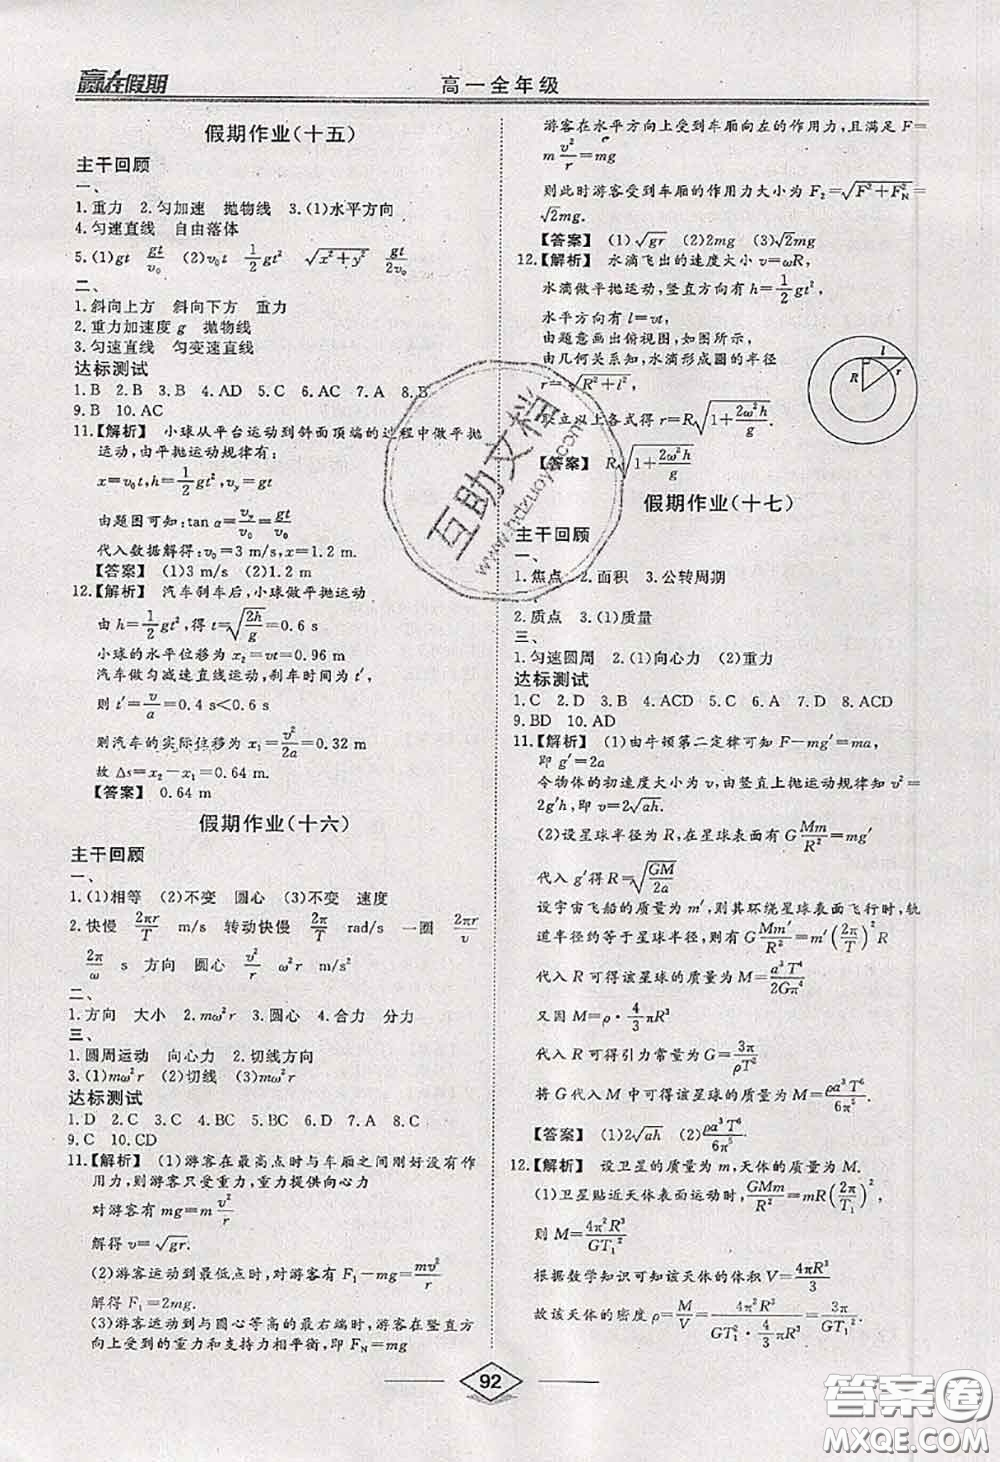 赢在假期
高一全年级
假期作业(十五)
主干回顾
一、
1.重力 2.匀加速 抛物线 3.(1)水平方向
4.匀速直线 自由落体
5.(1)gt gt/v₀ (2)v₀t 1/2gt² √(x²+y²) gt/2v₀
二、
1.斜向上方 斜向下方 重力
2.重力加速度 g 抛物线
3.匀速直线 匀变速直线
达标测试
1.B 2.B 3.B 4.AD 5.C 6.AC 7.A 8.B
9.B 10.AC
11.【解析】 小球从平台运动到斜面顶端的过程中做平抛
运动,由平抛运动规律有:
x=v₀t,h=1/2gt²,v_y=gt
由题图可知:tan α=v_y/v₀=gt/v₀
代入数据解得:v₀=3 m/s,x=1.2 m.
【答案】 (1)3 m/s (2)1.2 m
12.【解析】 汽车刹车后,小球做平抛运动
由 h=1/2gt²,得 t=√(2h/g)=0.6 s
小球的水平位移为 x₂=vt=0.96 m
汽车做匀减速直线运动,刹车时间为 t′,
则 t′=v/a=0.4 s<0.6 s
则汽车的实际位移为 x₁=v²/2a=0.32 m
故 Δs=x₂-x₁=0.64 m.
【答案】 0.64 m
假期作业(十六)
主干回顾
一、
1.(1)相等 (2)不变 圆心 (3)不变 速度
2.快慢 2πr/T m/s 转动快慢 2π/T rad/s 一圈 2πr/v
2π/ω s 方向 圆心 v²/r ω²r m/s²
二、
1.方向 大小 2.mω²r 3.圆心 4.合力 分力
三、
1.圆周运动 向心力 2.切线方向
3.(1)mω²r (2)切线 (3)mω²r
达标测试
1.D 2.C 3.C 4.BC 5.BC 6.D 7.A 8.C
9.C 10.CD
11.【解析】 (1)游客在最高点时与车厢之间刚好没有作
用力,则游客只受重力,重力提供向心力
对游客有 mg=m v²/r
解得 v=√gr.
(2)游客运动到最低点时,对游客有 F₁-mg=mv²/r
解得 F₁=2mg.
(3)游客运动到与圆心等高的最右端时,游客在竖直方
向上受到的重力和支持力相平衡,即 F_N=mg
游客在水平方向上受到车厢向左的作用力,且满足 F=
m v²/r=mg
则此时游客受到车厢的作用力大小为 F₂=√(F²+F_N²)=
√2mg.
【答案】 (1)√gr (2)2mg (3)√2mg
12.【解析】 水滴飞出的速度大小 v=ωR,
水滴做平抛运动,竖直方向有 h=1/2gt²,
水平方向有 l=vt,
由题意画出俯视图,如图所示,
由几何关系知,水滴形成圆的半径
r=√(R²+l²),
联立以上各式得 r=R√(1+2ω²h/g).
【答案】 R√(1+2ω²h/g)
l
R
r
假期作业(十七)
主干回顾
一、
1.焦点 2.面积 3.公转周期
2.质点 3.(1)质量
三、
1.匀速圆周 2.(1)向心力 (2)重力
达标测试
1.C 2.D 3.B 4.ACD 5.C 6.A 7.D 8.ACD
9.BD 10.AD
11.【解析】 (1)由牛顿第二定律可知 F-mg′=ma,
即 g′=2a
令物体的初速度大小为 v,由竖直上抛运动规律 v²=
2g′h,即 v=2√ah.
(2)设星球半径为 R,在星球表面有 G Mm/R²=mg′
代入 g′得 R=√(GM/2a)
设宇宙飞船的质量为 m′,则其环绕星球表面飞行时,轨
道半径约等于星球半径,则有 G Mm′/R²=m′(2π/T)²R
代入 R 可得该星球的质量为 M=a³T⁴/2Gπ⁴
又因 M=ρ·4/3πR³
代入 R 可得引力常量为 G=3π/ρT²,
将 G 代入 M 中可得该星球的质量为 M=ρa³T⁶/6π⁵.
【答案】 (1)2√ah (2)ρa³T⁶/6π⁵
12.【解析】 设卫星的质量为 m,天体的质量为 M.
(1)卫星贴近天体表面运动时,GMm/R²=mR(2π/T₁)²,
则 M=4π²R³/GT₁²
根据数学知识可知该天体的体积 V=4πR³/3
故该天体的密度 ρ=M/V=4π²R³/(GT₁²·4/3πR³)=3π/GT₁².
92
互助文档
www.hdzuoye.com
答案圈
MXQE.COM